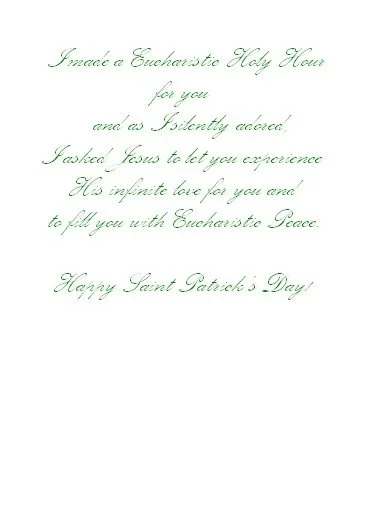 I made a Eucharistic Holy Hour
for you
and as I silently adored
I asked Jesus to let you experience
His infinite love for you and
to fill you with Eucharistic Peace.
Happy Saint Patrick's Day!